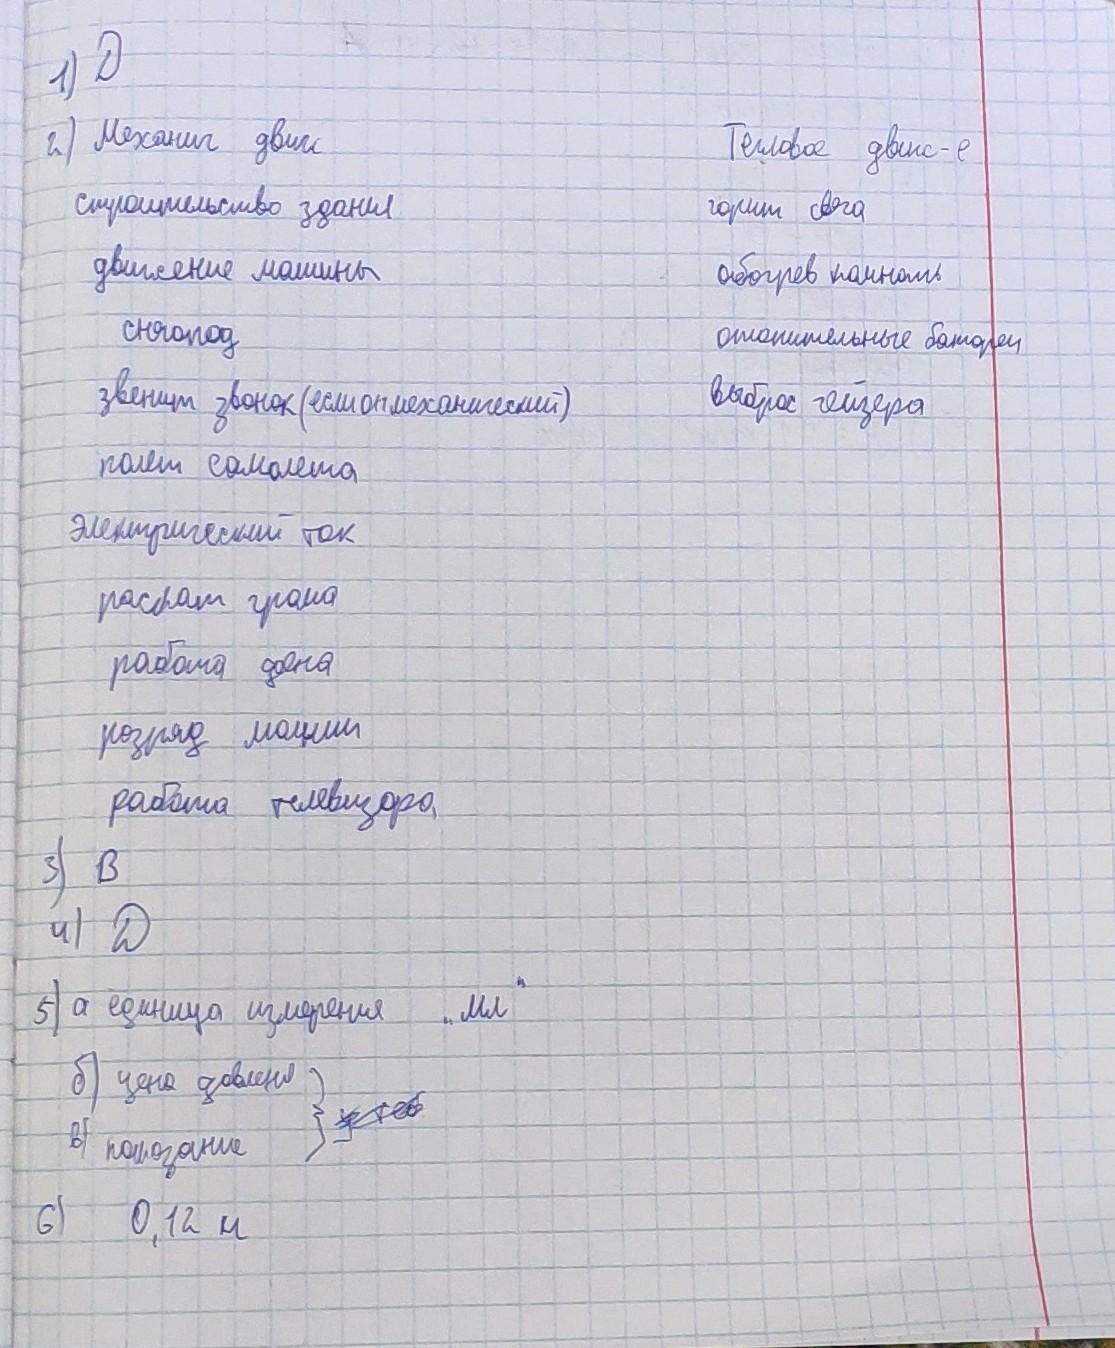 1) D
2) Механич движ
Тепловое движ-е
строительство здания
горит свеча
движение машины
обогрев комнаты
снегопад
отопительные батареи
звенит звонок (если он механический)
выброс гейзера
полет самолета
электрический ток
раскат грома
работа фена
разряд молнии
работа телевизора
3) В
4) D
5) а единица измерения „мл"
б) цена деления
в) показание
6) 0,12 м